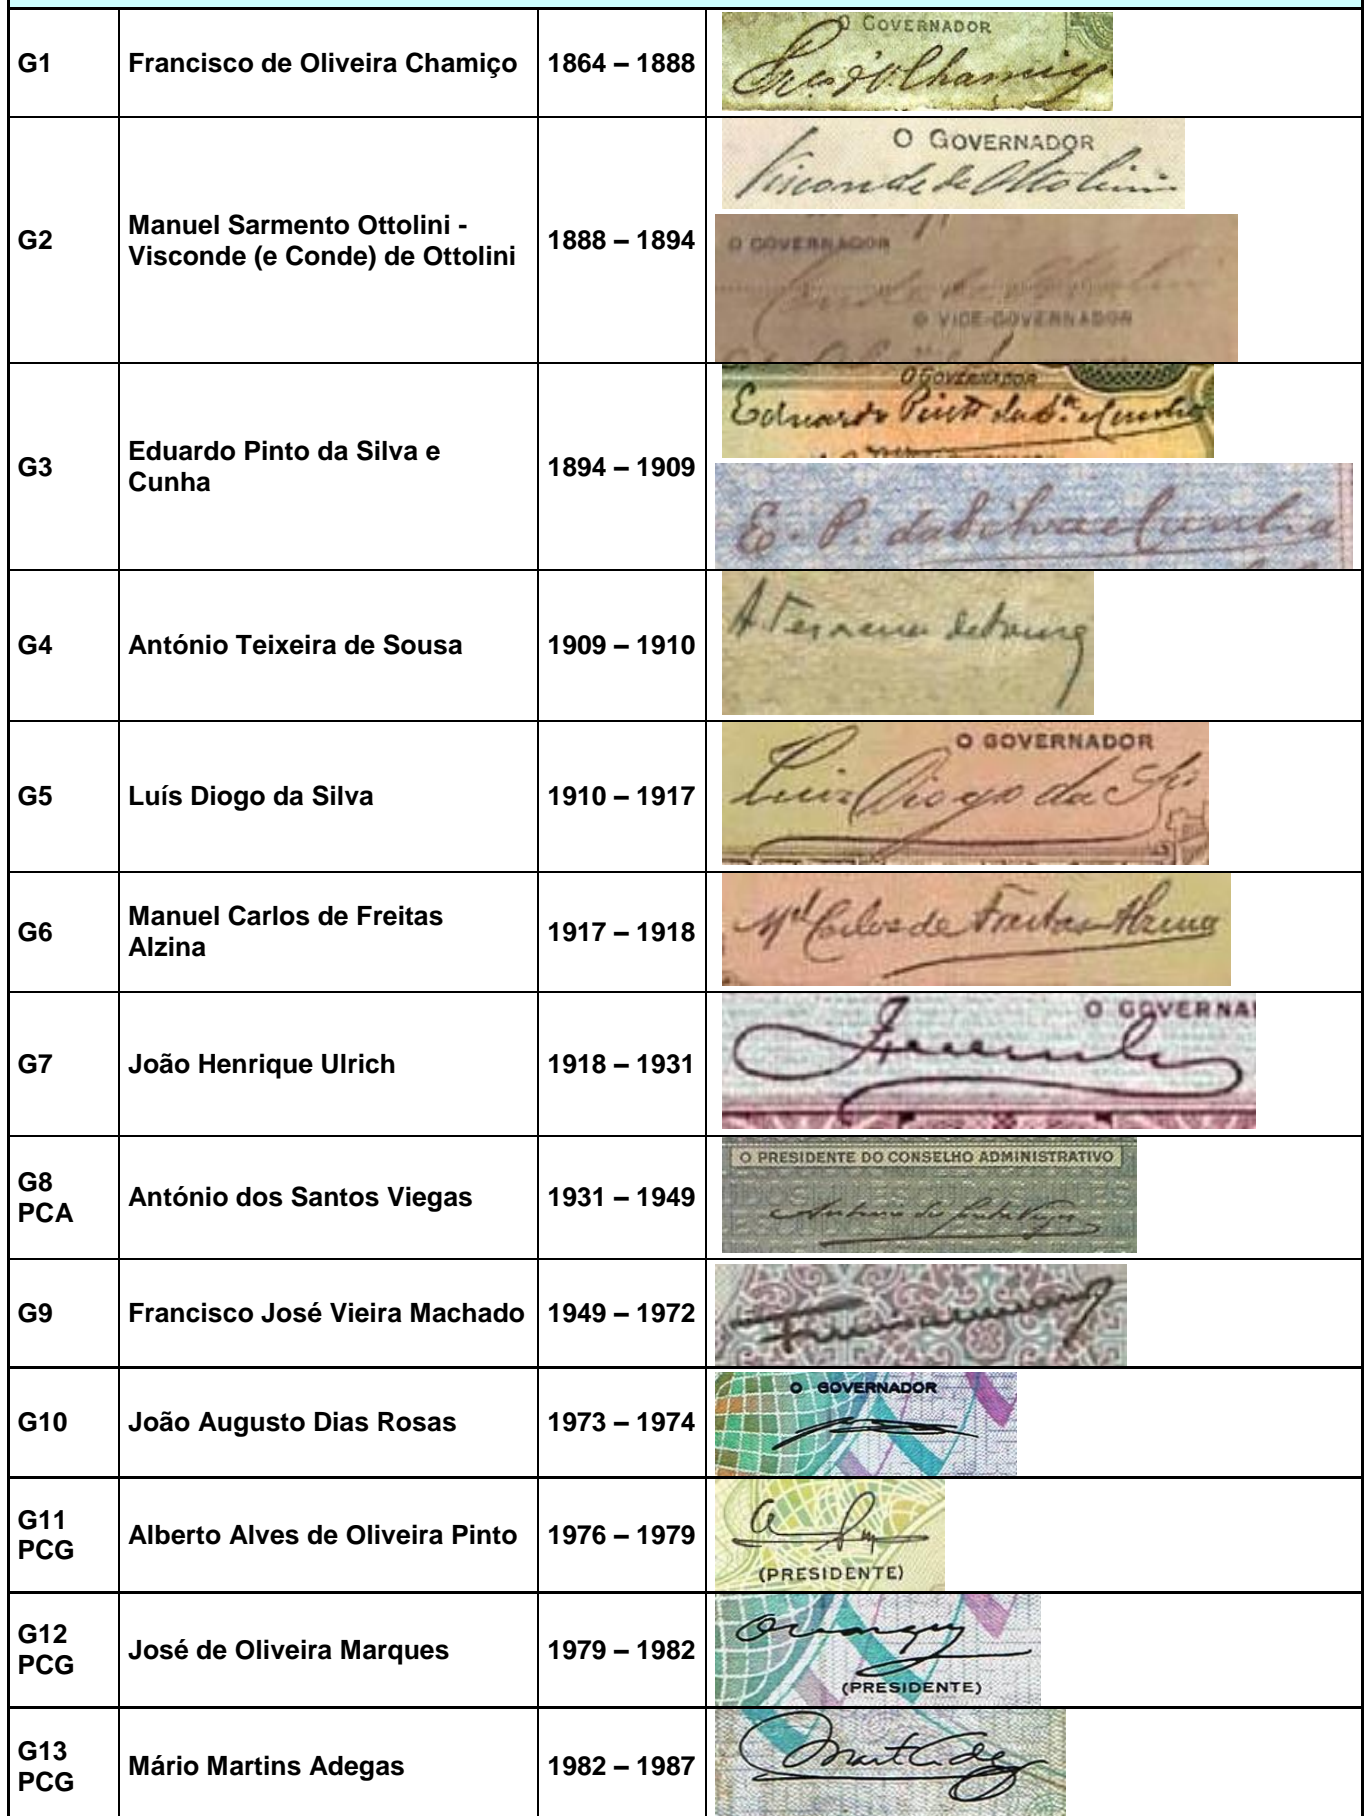 G1
Francisco de Oliveira Chamiço
1864 – 1888
O GOVERNADOR
G2
Manuel Sarmento Ottolini -
Visconde (e Conde) de Ottolini
1888 – 1894
O GOVERNADOR
Visconde de Ottolini
O GOVERNADOR
O VICE-GOVERNADOR
G3
Eduardo Pinto da Silva e
Cunha
1894 – 1909
O GOVERNADOR
Eduardo Pinto da S.ª e Cunha
E. P. da Silva e Cunha
G4
António Teixeira de Sousa
1909 – 1910
G5
Luís Diogo da Silva
1910 – 1917
O GOVERNADOR
Luiz Diogo da
G6
Manuel Carlos de Freitas
Alzina
1917 – 1918
Mel Carlos de Freitas Alzina
G7
João Henrique Ulrich
1918 – 1931
O GOVERNA
G8
PCA
António dos Santos Viegas
1931 – 1949
O PRESIDENTE DO CONSELHO ADMINISTRATIVO
G9
Francisco José Vieira Machado
1949 – 1972
G10
João Augusto Dias Rosas
1973 – 1974
O GOVERNADOR
G11
PCG
Alberto Alves de Oliveira Pinto
1976 – 1979
(PRESIDENTE)
G12
PCG
José de Oliveira Marques
1979 – 1982
(PRESIDENTE)
G13
PCG
Mário Martins Adegas
1982 – 1987